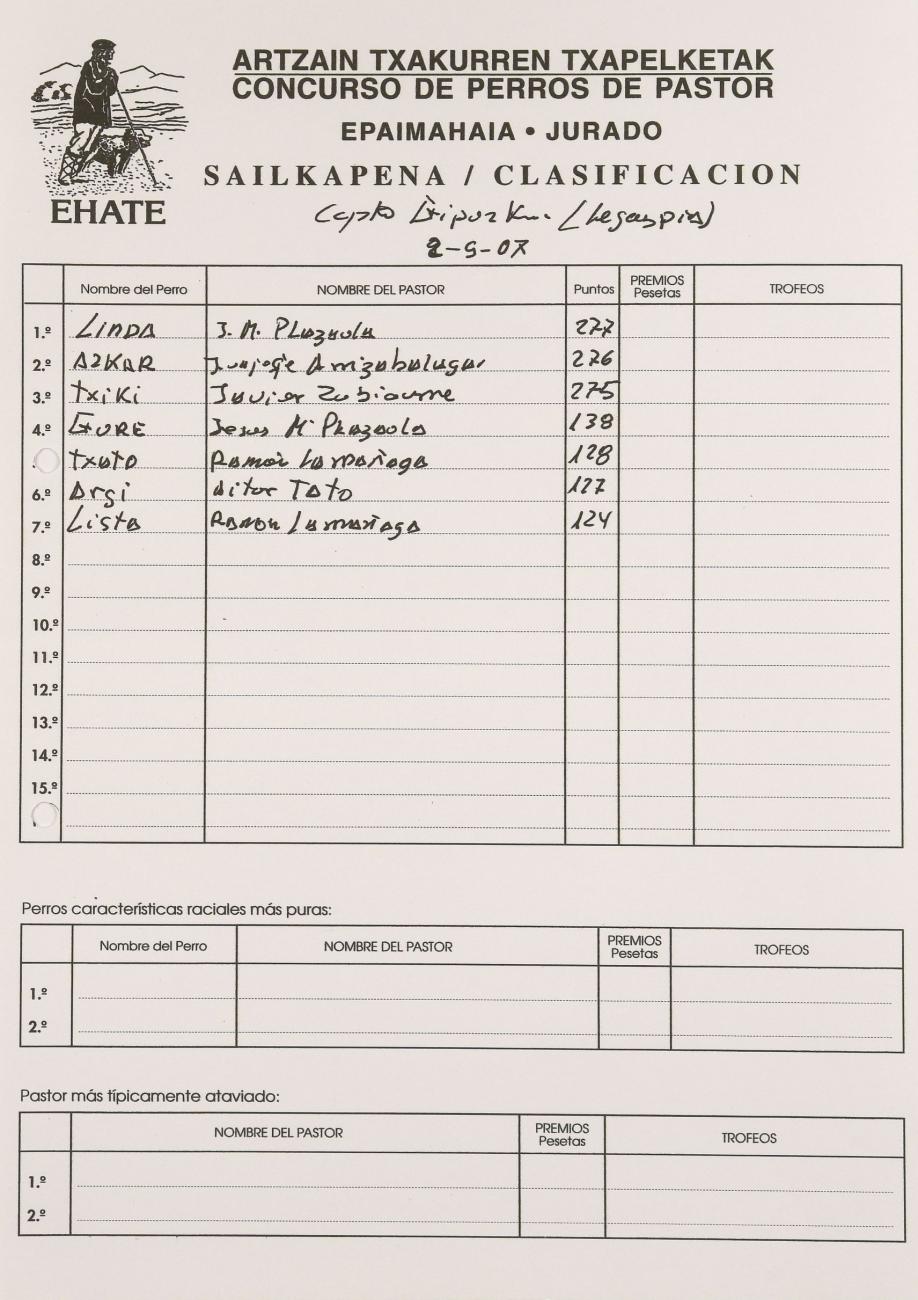 ARTZAIN TXAKURREN TXAPELKETAK
CONCURSO DE PERROS DE PASTOR
EPAIMAHAIA • JURADO
SAILKAPENA / CLASIFICACION
EHATE
(Legaspia)
2-9-07
Nombre del Perro NOMBRE DEL PASTOR Puntos PREMIOS Pesetas TROFEOS
1.º LINDA J. M. Plazaola 277
2.º AZKAR Juanjoxe Arrizabalaga 276
3.º Txiki Javier Zubiaurre 275
4.º GURE Jesus Mª Plazaola 138
Txato Ramon Larrañaga 128
6.º Argi Aitor Tato 127
7.º Lista Ramon Larrañaga 124
8.º
9.º
10.º
11.º
12.º
13.º
14.º
15.º
Perros características raciales más puras:
Nombre del Perro NOMBRE DEL PASTOR PREMIOS Pesetas TROFEOS
1.º
2.º
Pastor más típicamente ataviado:
NOMBRE DEL PASTOR PREMIOS Pesetas TROFEOS
1.º
2.º